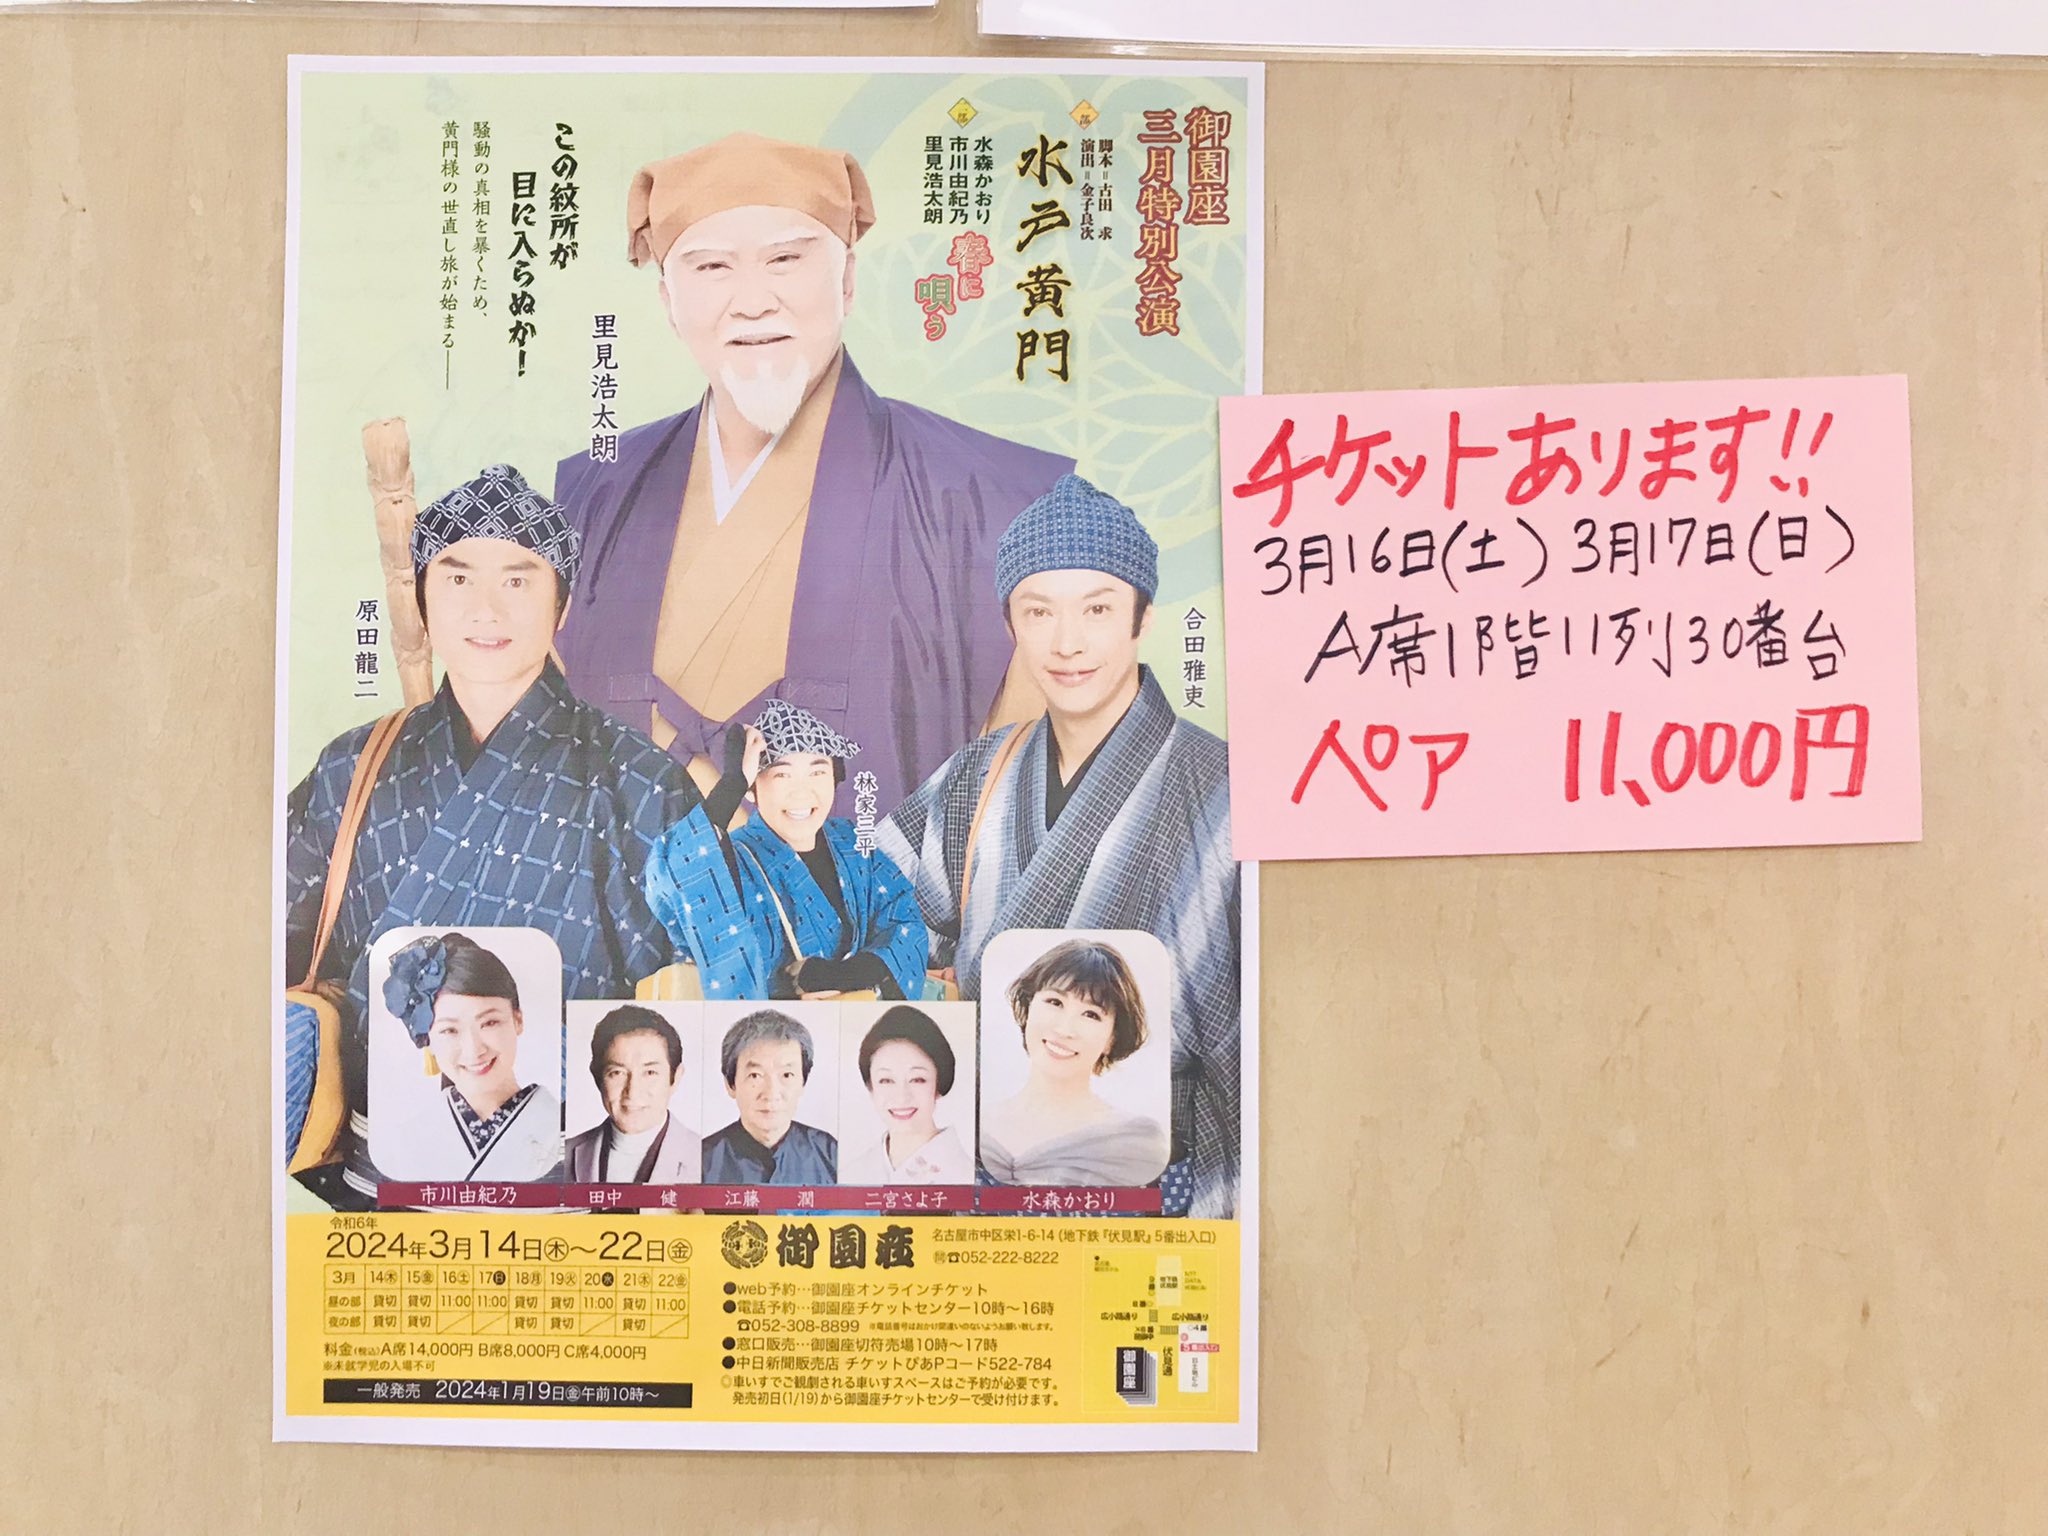 御園座
三月特別公演
一部
脚本＝古田 求
演出＝金子良次
水戸黄門
二部
水森かおり
市川由紀乃
里見浩太朗
春に唄う
この紋所が
目に入らぬか！
騒動の真相を暴くため、
黄門様の世直し旅が始まる──
里見浩太朗
原田龍二
合田雅吏
林家三平
市川由紀乃
田中 健
江藤 潤
二宮さよ子
水森かおり
令和6年
2024年3月14日㊍～22日㊎
3月 14㊍ 15㊎ 16㊏ 17㊐ 18㊊ 19㊋ 20㊌ 21㊍ 22㊎
昼の部 貸切 貸切 11:00 11:00 貸切 貸切 11:00 貸切 11:00
夜の部 貸切 貸切 貸切 貸切 貸切
料金(税込)A席14,000円 B席8,000円 C席4,000円
※未就学児の入場不可
一般発売 2024年1月19日㊎午前10時～
御園座
名古屋市中区栄1-6-14（地下鉄『伏見駅』5番出入口）
㉄☎052-222-8222
●web予約…御園座オンラインチケット
●電話予約…御園座チケットセンター10時～16時
☎052-308-8899 ※電話番号はおかけ間違いのないようお願い致します。
●窓口販売…御園座切符売場10時～17時
●中日新聞販売店 チケットぴあPコード522-784
◎車いすでご観劇される車いすスペースはご予約が必要です。
発売初日(1/19)から御園座チケットセンターで受け付けます。
広小路通り
広小路通り
伏見通
御園座
チケットあります!!
3月16日(土) 3月17日(日)
A席1階11列30番台
ペア 11,000円